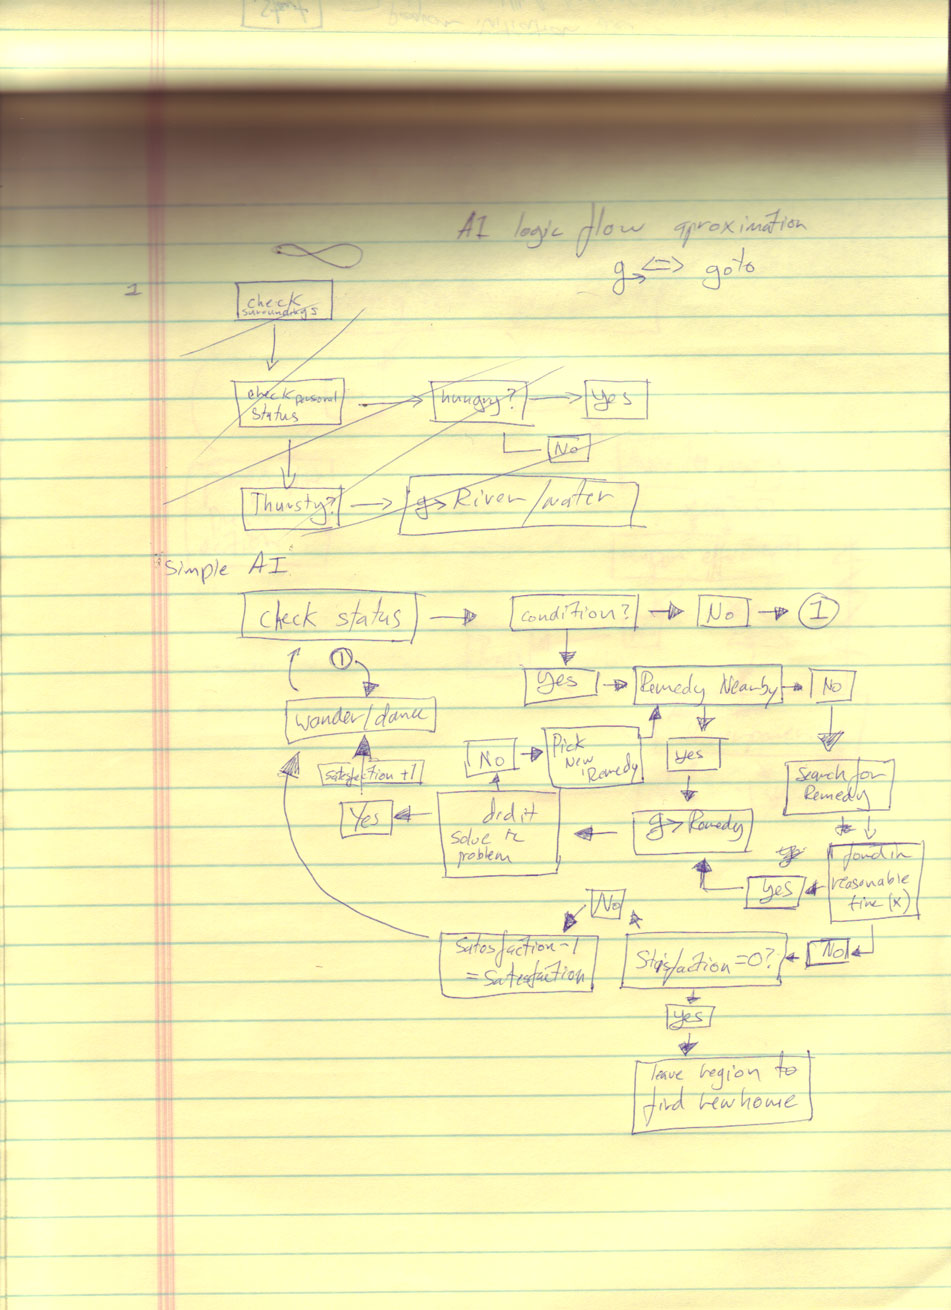 AI logic flow aproximation
g→ <=> goto
1
check
surroundings
check personal
status
hungry?
yes
No
Thursty?
g→ River/water
Simple AI
check status
condition?
No
1
yes
Remedy Nearby
No
1
wander/dance
No
Pick
New
Remedy
yes
Satesfaction +1
Search for
Remedy
Yes
did it
solve the
problem
g→ Remedy
found in
reasonable
time (x)
yes
No
Satosfaction-1
=Satesfaction
Stisfaction=0?
No
yes
leave region to
find new home